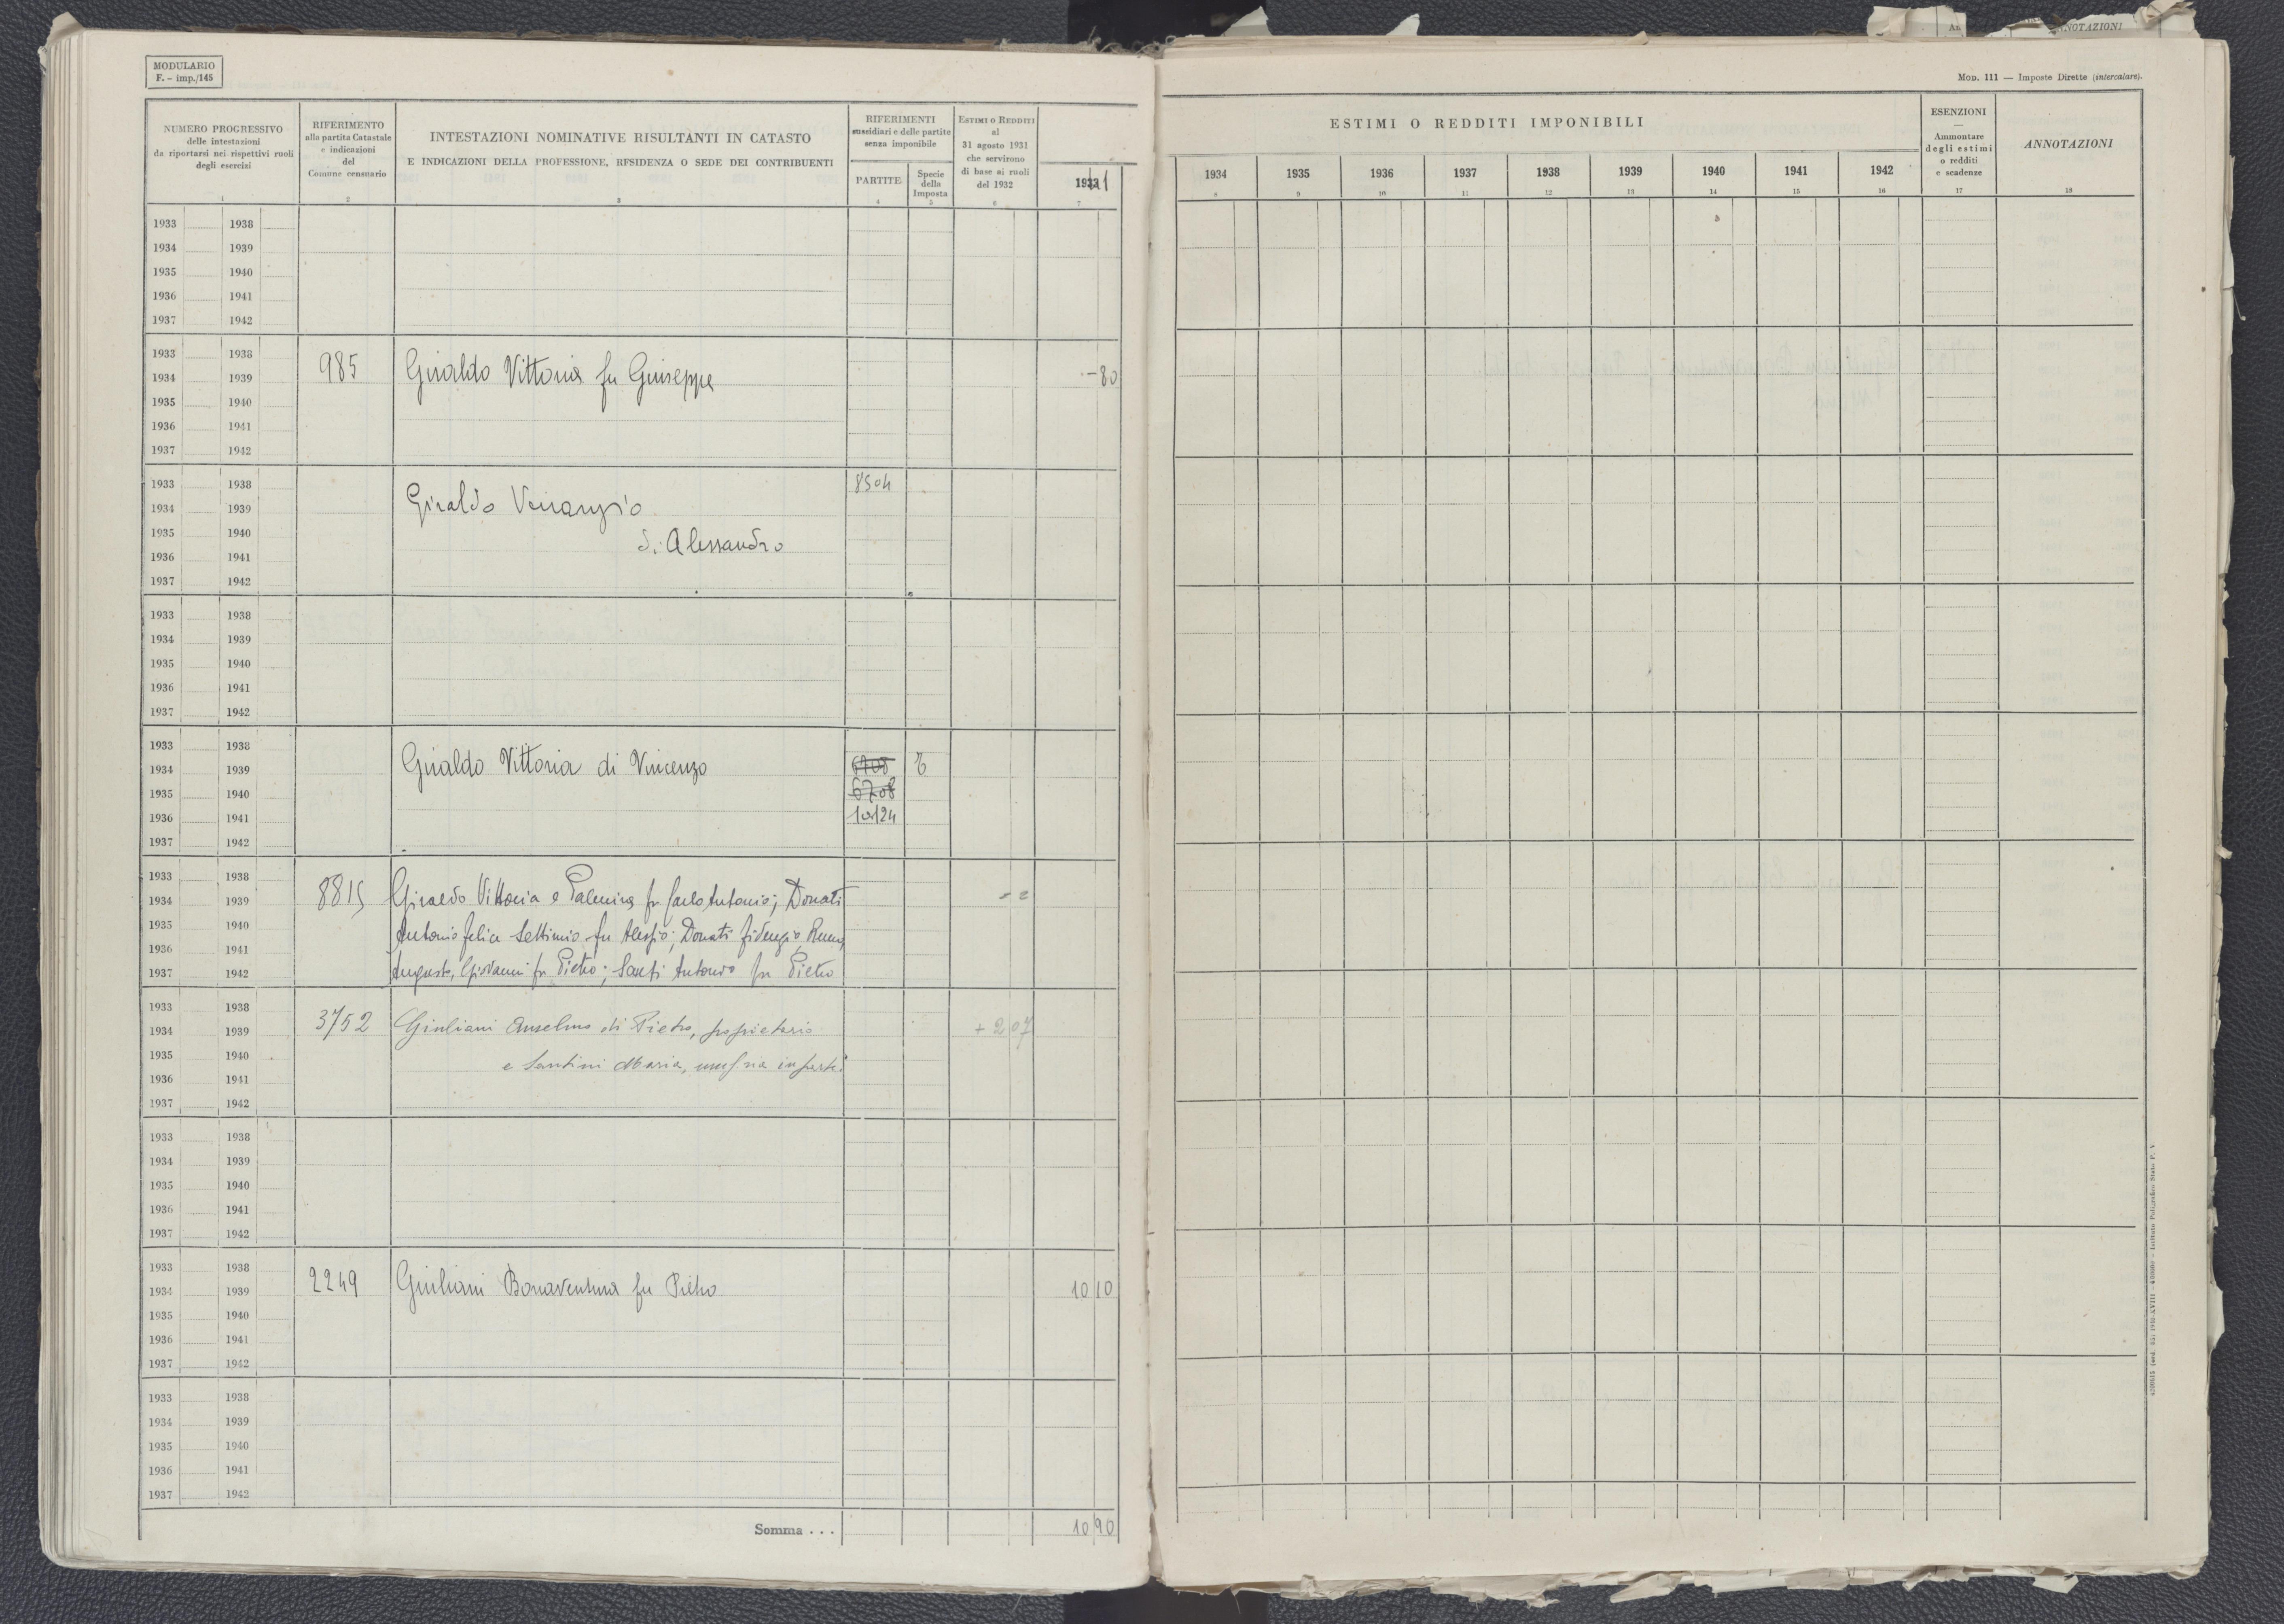 ANNOTAZIONI
MODULARIO
F. - imp./145
MOD. 111 — Imposte Dirette (intercalare).
NUMERO PROGRESSIVO
delle intestazioni
da riportarsi nei rispettivi ruoli
degli esercizi
1
RIFERIMENTO
alla partita Catastale
e indicazioni
del
Comune censuario
2
INTESTAZIONI NOMINATIVE RISULTANTI IN CATASTO
E INDICAZIONI DELLA PROFESSIONE, RESIDENZA O SEDE DEI CONTRIBUENTI
3
RIFERIMENTI
sussidiari e delle partite
senza imponibile
PARTITE
4
Specie
della
Imposta
5
ESTIMI O REDDITI
al
31 agosto 1931
che servirono
di base ai ruoli
del 1932
6
7
ESTIMI O REDDITI IMPONIBILI
1934 1935 1936 1937 1938 1939 1940 1941 1942
8 9 10 11 12 13 14 15 16
ESENZIONI
—
Ammontare
degli estimi
o redditi
e scadenze
17
ANNOTAZIONI
18
1933 1938
1934 1939
1935 1940
1936 1941
1937 1942
1933 1938
985 Giraldo Vittoria fu Giuseppe -80
1934 1939
1935 1940
1936 1941
1937 1942
1933 1938 8504
1934 1939 Giraldo Venanzio
1935 1940 di Alessandro
1936 1941
1937 1942
1933 1938
1934 1939
1935 1940
1936 1941
1937 1942
1933 1938
1934 1939 Giraldo Vittoria di Vincenzo
1935 1940 6708
1936 1941 10124
1937 1942
1933 1938
1934 1939 8815 Giraldo Vittoria e Palmira fu Carlo Antonio; Donati
1935 1940 Antonio Felice Settimio fu Alessio; Donati Fidenzio,
1936 1941
1937 1942 Augusto, Giovanni fu Pietro; Santi Antonio fu Pietro
1933 1938
1934 1939 3752 Giuliani Anselmo di Pietro, proprietario + 2 07
1935 1940 e Santini Maria, in parte
1936 1941
1937 1942
1933 1938
1934 1939
1935 1940
1936 1941
1937 1942
1933 1938
1934 1939 2249 Giuliani Bonaventura fu Pietro 10 10
1935 1940
1936 1941
1937 1942
1933 1938
1934 1939
1935 1940
1936 1941
1937 1942
Somma . . . 10 90